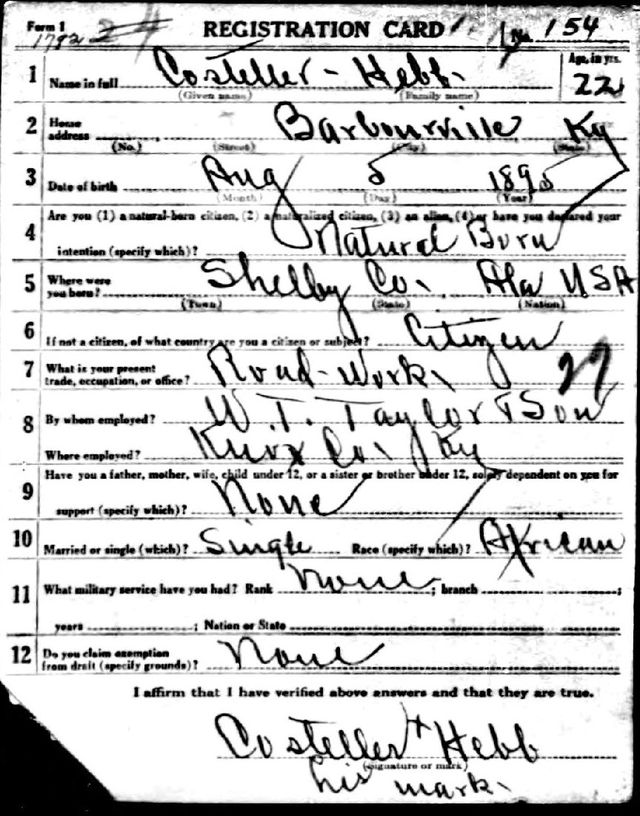 Form 1 REGISTRATION CARD No. 154
1782
1 Name in full Costeller - Hebb Age, in yrs. 22
(Given name) (Family name)
2 Home address Barbourville Ky
(No.) (Street) (City) (State)
3 Date of birth Aug 5 1895
(Month) (Day) (Year)
Are you (1) a natural-born citizen, (2) a naturalized citizen, (3) an alien, (4) or have you declared your
4 intention (specify which)? Natural Born
5 Where were you born? Shelby Co. Ala USA
(Town) (State) (Nation)
6 If not a citizen, of what country are you a citizen or subject? Citizen
7 What is your present trade, occupation, or office? Road-Work
8 By whom employed? W. T. Taylor & Son
Where employed? Knox Co. Ky
9 Have you a father, mother, wife, child under 12, or a sister or brother under 12, solely dependent on you for
support (specify which)? None
10 Married or single (which)? Single Race (specify which)? African
11 What military service have you had? Rank None ; branch ;
years ; Nation or State
12 Do you claim exemption from draft (specify grounds)? None
I affirm that I have verified above answers and that they are true.
Costeller x Hebb
(Signature or mark)
his mark